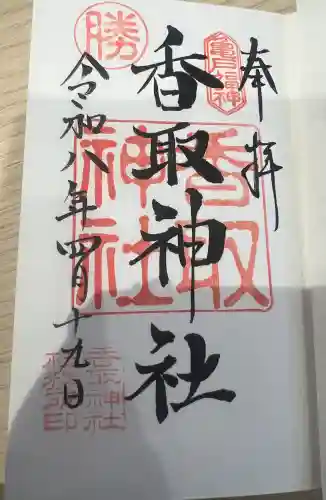 奉拝
亀戸福神
香取神社
香取神社
勝
令和八年四月十九日
香取神社